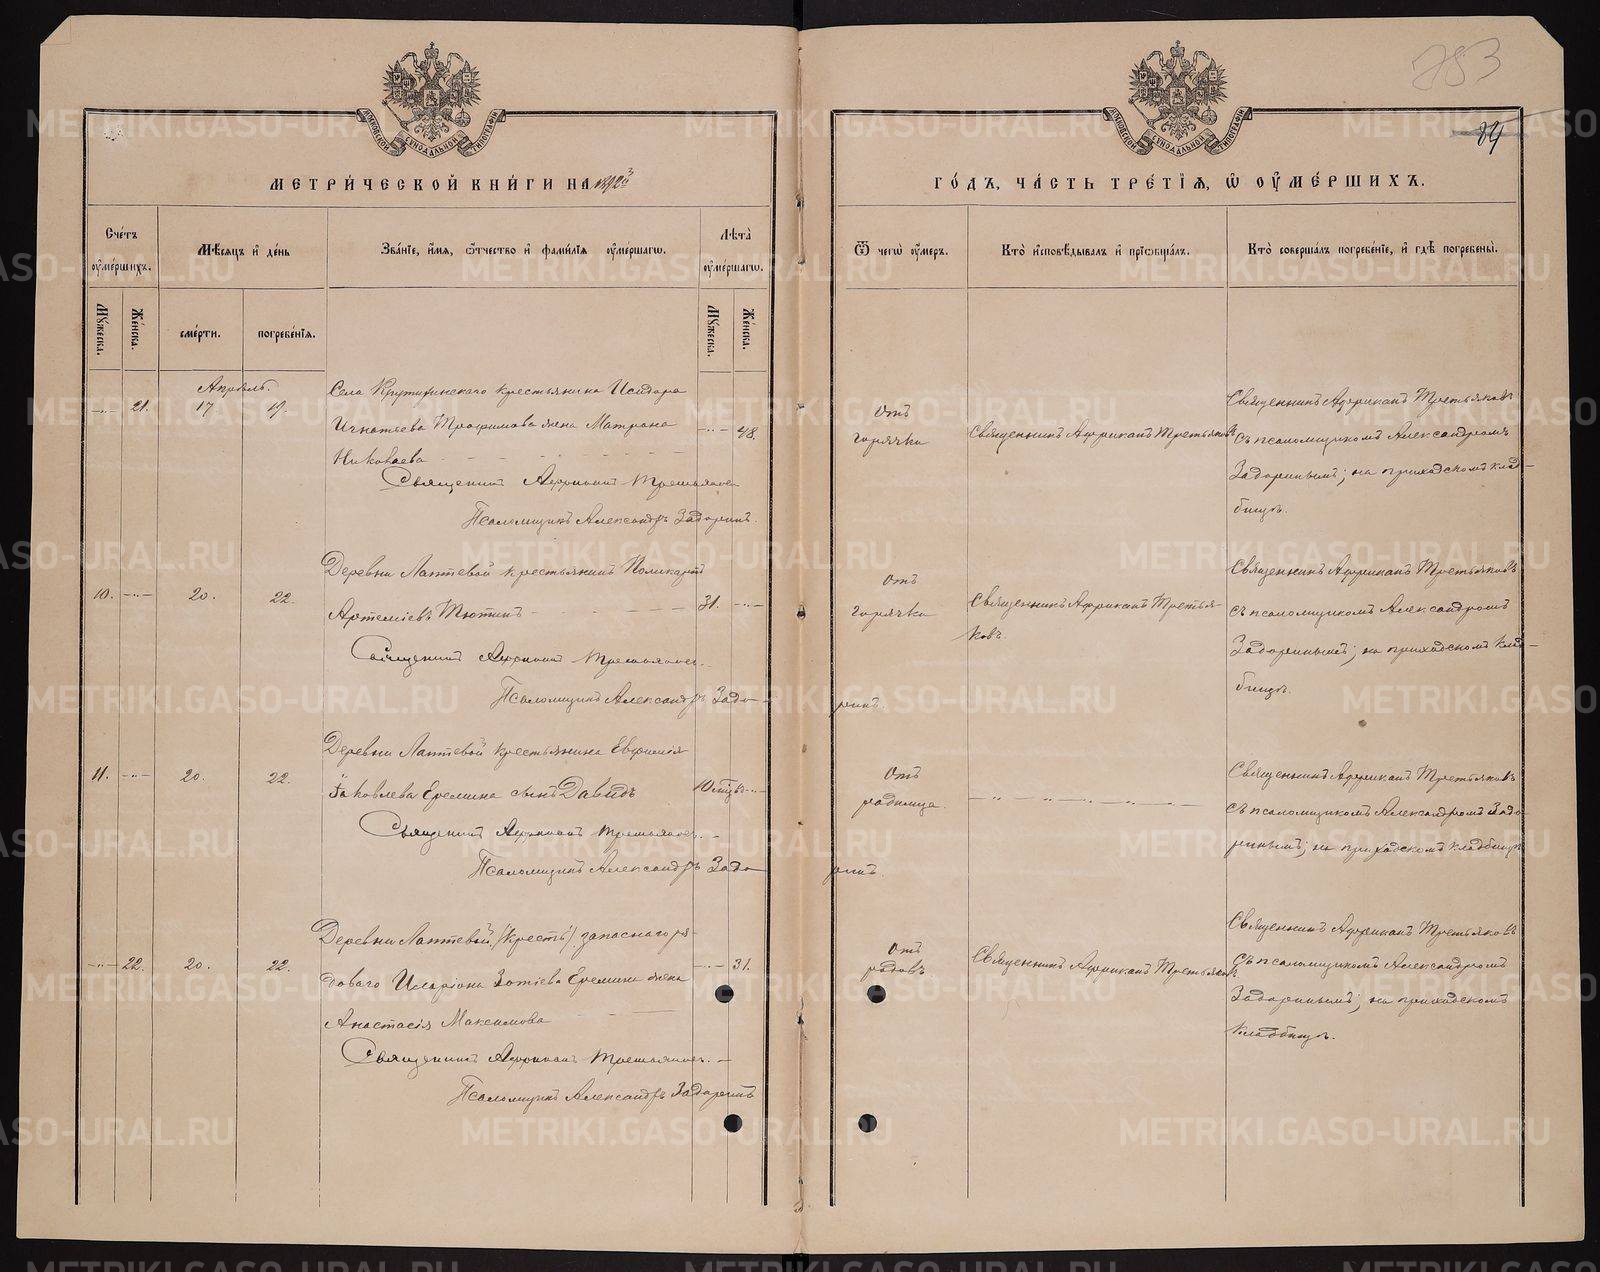 783
84
МЕТРИ́ЧЕСКОЙ КНИ́ГИ НА 1893
ГО́ДЪ, ЧА́СТЬ ТРЕ́ТІЯ, Ѿ ОУМЕ́РШИХЪ.
Сче́тъ оуме́ршихъ.
Мѣ́сяцъ и де́нь
Зва́ніе, и́мя, ѻ́тчество и фами́лія оуме́ршагѡ.
Лѣта̀ оуме́ршагѡ.
Ѿ чегѡ̀ оу́меръ.
Кто̀ исповѣ́дывалъ и пріѻбща́лъ.
Кто̀ соверша́лъ погребе́ніе, и гдѣ̀ погребены̀.
Мꙋ́жеска.
Же́нска.
сме́рти.
погребе́нія.
Мꙋ́жеска.
Же́нска.
Апрѣль.
21. 17 19.
Села Крутихинскаго крестьянина Исидора
Игнатьева Трофимова жена Матрона
Николаева
48.
Священникъ Африканъ Третьяковъ
Псаломщикъ Александръ Задоринъ.
Отъ
горячки
Священникъ Африканъ Третьяковъ
Священникъ Африканъ Третьяковъ
съ псаломщикомъ Александромъ
Задоринымъ; на приходскомъ клад-
бищѣ.
10. 20. 22.
Деревни Лаптевой крестьянинъ Поликарпъ
Артеміевъ Тютинъ
31.
Священникъ Африканъ Третьяковъ.
Псаломщикъ Александръ Задо-
ринъ.
Отъ
горячки
Священникъ Африканъ Третья-
ковъ.
Священникъ Африканъ Третьяковъ
съ псаломщикомъ Александромъ
Задоринымъ; на приходскомъ клад-
бищѣ.
11. 20. 22.
Деревни Лаптевой крестьянина Евфимія
Іаковлева Еремина сынъ Давидъ
Священникъ Африканъ Третьяковъ.
Псаломщикъ Александръ Задо-
ринъ.
Отъ
родимца.
Священникъ Африканъ Третьяковъ
съ псаломщикомъ Александромъ Задо-
ринымъ; на приходскомъ кладбищѣ.
22. 20. 22.
Деревни Лаптевой /крест./ запаснаго ря-
доваго Иларіона Зотіева Еремина жена
Анастасія Максимова
31.
Священникъ Африканъ Третьяковъ.
Псаломщикъ Александръ Задоринъ
Отъ
родовъ
Священникъ Африканъ Третьяковъ.
Священникъ Африканъ Третьяковъ
съ псаломщикомъ Александромъ
Задоринымъ; на приходскомъ
кладбищѣ.
METRIKI.GASO-URAL.RU